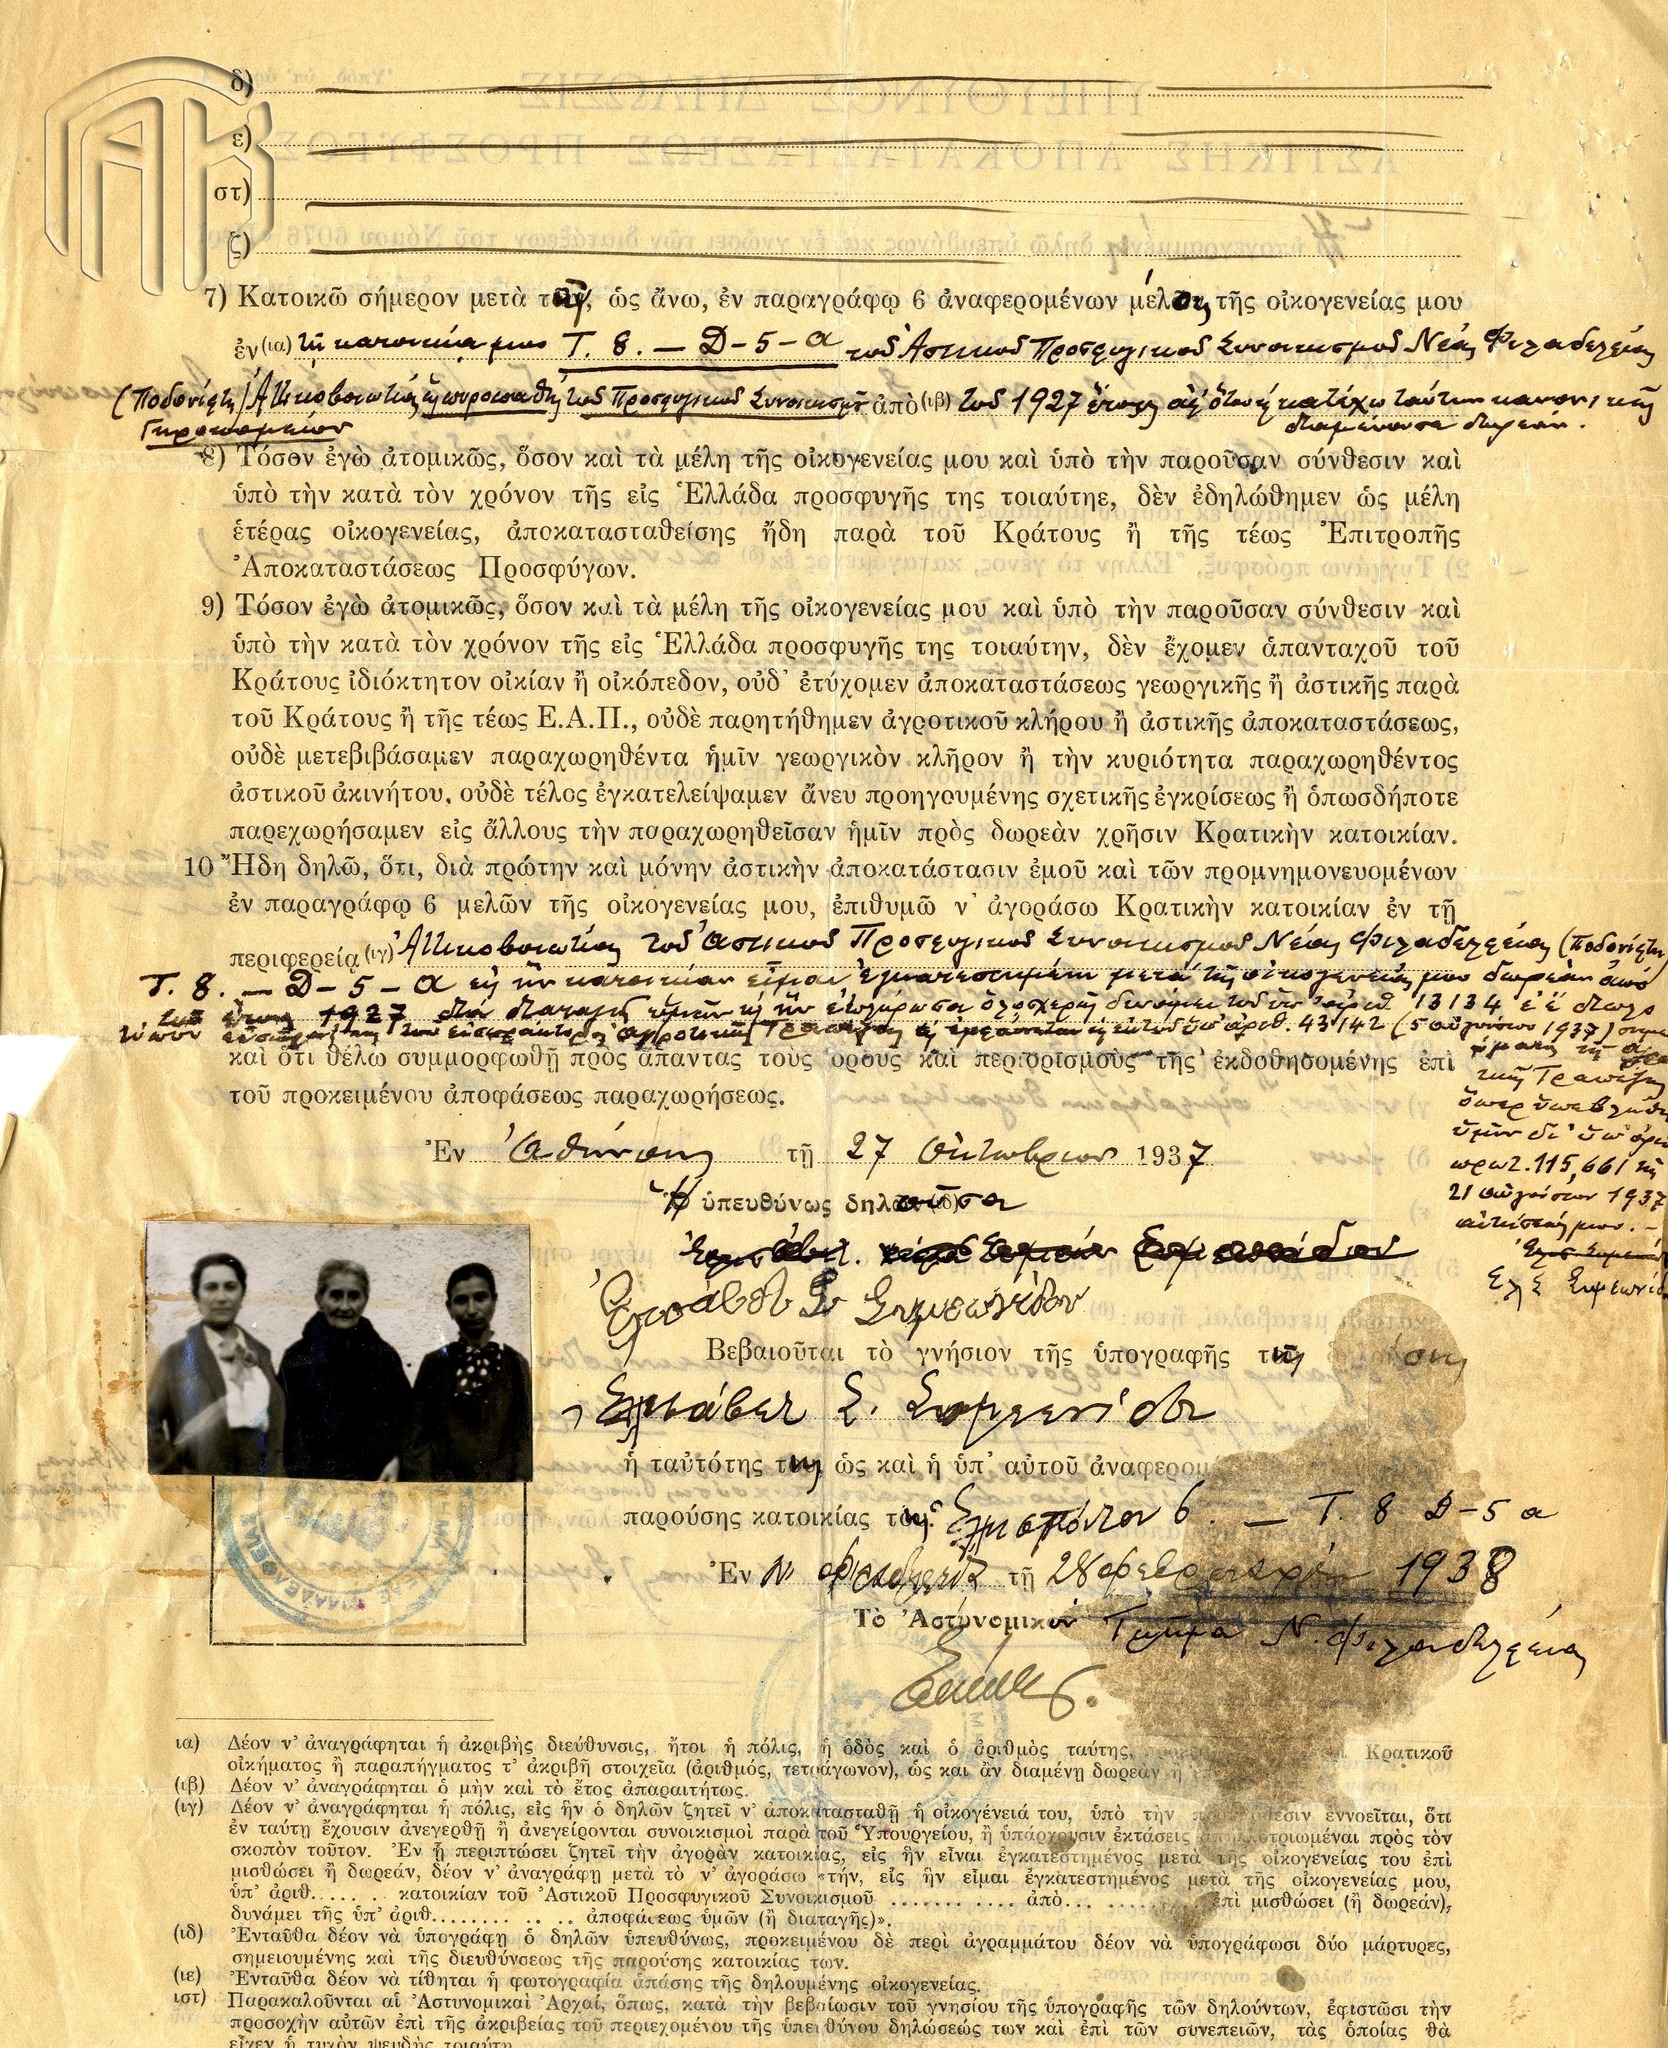 δ)
ε)
στ)
ζ)
7) Κατοικῶ σήμερον μετὰ τῶν, ὡς ἄνω, ἐν παραγράφῳ 6 ἀναφερομένων μελῶν τῆς οἰκογενείας μου
ἐν (ια) τῇ κατοικίᾳ μου Τ. 8. — D-5-α τοῦ Ἀστικοῦ Προσφυγικοῦ Συνοικισμοῦ Νέας Φιλαδελφείας
(Ποδονίφτη) Ἀττικοβοιωτίας τοῦ Προσφυγικοῦ Συνοικισμοῦ ἀπὸ (ιβ) τοῦ 1927 ἔτους
διαμένουσα δωρεάν.
8) Τόσον ἐγὼ ἀτομικῶς, ὅσον καὶ τὰ μέλη τῆς οἰκογενείας μου καὶ ὑπὸ τὴν παροῦσαν σύνθεσιν καὶ
ὑπὸ τὴν κατὰ τὸν χρόνον τῆς εἰς Ἑλλάδα προσφυγῆς της τοιαύτηε, δὲν ἐδηλώθημεν ὡς μέλη
ἑτέρας οἰκογενείας, ἀποκατασταθείσης ἤδη παρὰ τοῦ Κράτους ἢ τῆς τέως Ἐπιτροπῆς
Ἀποκαταστάσεως Προσφύγων.
9) Τόσον ἐγὼ ἀτομικῶς, ὅσον καὶ τὰ μέλη τῆς οἰκογενείας μου καὶ ὑπὸ τὴν παροῦσαν σύνθεσιν καὶ
ὑπὸ τὴν κατὰ τὸν χρόνον τῆς εἰς Ἑλλάδα προσφυγῆς της τοιαύτην, δὲν ἔχομεν ἁπανταχοῦ τοῦ
Κράτους ἰδιόκτητον οἰκίαν ἢ οἰκόπεδον, οὐδ' ἐτύχομεν ἀποκαταστάσεως γεωργικῆς ἢ ἀστικῆς παρὰ
τοῦ Κράτους ἢ τῆς τέως Ε.Α.Π., οὐδὲ παρητήθημεν ἀγροτικοῦ κλήρου ἢ ἀστικῆς ἀποκαταστάσεως,
οὐδὲ μετεβιβάσαμεν παραχωρηθέντα ἡμῖν γεωργικὸν κλῆρον ἢ τὴν κυριότητα παραχωρηθέντος
ἀστικοῦ ἀκινήτου, οὐδὲ τέλος ἐγκατελείψαμεν ἄνευ προηγουμένης σχετικῆς ἐγκρίσεως ἢ ὁπωσδήποτε
παρεχωρήσαμεν εἰς ἄλλους τὴν παραχωρηθεῖσαν ἡμῖν πρὸς δωρεὰν χρῆσιν Κρατικὴν κατοικίαν.
10 Ἤδη δηλῶ, ὅτι, διὰ πρώτην καὶ μόνην ἀστικὴν ἀποκατάστασιν ἐμοῦ καὶ τῶν προμνημονευομένων
ἐν παραγράφῳ 6 μελῶν τῆς οἰκογενείας μου, ἐπιθυμῶ ν' ἀγοράσω Κρατικὴν κατοικίαν ἐν τῇ
περιφερείᾳ (ιγ) Ἀττικοβοιωτίας τοῦ Ἀστικοῦ Προσφυγικοῦ Συνοικισμοῦ Νέας Φιλαδελφείας (Ποδονίφτη)
Τ. 8. — D-5-α εἰς ἣν κατοικίαν εἶμαι ἐγκατεστημένη μετὰ τῆς οἰκογενείας μου δωρεὰν ἀπὸ
τοῦ ἔτους 1927 13134
Ἀγροτικῆς Τραπέζης ὑπ' ἀριθ. 43142 (5 αὐγούστου 1937)
καὶ ὅτι θέλω συμμορφωθῆ πρὸς ἅπαντας τοὺς ὅρους καὶ περιορισμοὺς τῆς ἐκδοθησομένης ἐπὶ
τοῦ προκειμένου ἀποφάσεως παραχωρήσεως.
Τραπέζης
ὅπερ ὑπεβλήθη
ὑμῖν δι' ὑπ' ἀριθ
πρωτ. 115,661 τῆς
21 αὐγούστου 1937
αἰτήσεώς μου. —
Ελ Σ Συμεωνίδ
Ἐν Ἀθήναις τῇ 27 Ὀκτωβρίου 1937
Ἡ ὑπευθύνως δηλοῦσα
Ἐλισάβετ Σ Συμεωνίδου
Βεβαιοῦται τὸ γνήσιον τῆς ὑπογραφῆς τῆς
Ἐλισάβετ Σ. Συμεωνίδου
ἡ ταὐτότης της ὡς καὶ ἡ ὑπ' αὐτοῦ ἀναφερομ
παρούσης κατοικίας της. Ἑλλησπόντου 6. — Τ. 8 D-5 α
Ἐν Ν. Φιλαδελφείᾳ τῇ 28 Φεβρουαρίου 1938
Τὸ Ἀστυνομικὸν Τμῆμα Ν. Φιλαδελφείας
ια) Δέον ν' ἀναγράφηται ἡ ἀκριβὴς διεύθυνσις, ἤτοι ἡ πόλις, ἡ ὁδὸς καὶ ὁ ἀριθμὸς ταύτης, Κρατικοῦ
οἰκήματος ἢ παραπήγματος τ' ἀκριβῆ στοιχεῖα (ἀριθμός, τετράγωνον), ὡς καὶ ἂν διαμένῃ δωρεὰν ἢ
(ιβ) Δέον ν' ἀναγράφηται ὁ μὴν καὶ τὸ ἔτος ἀπαραιτήτως.
(ιγ) Δέον ν' ἀναγράφηται ἡ πόλις, εἰς ἣν ὁ δηλῶν ζητεῖ ν' ἀποκατασταθῇ ἡ οἰκογένειά του, ὑπὸ τὴν προϋπόθεσιν ἐννοεῖται, ὅτι
ἐν ταύτῃ ἔχουσιν ἀνεγερθῆ ἢ ἀνεγείρονται συνοικισμοὶ παρὰ τοῦ Ὑπουργείου, ἢ ὑπάρχουσιν ἐκτάσεις ἀπηλλοτριωμέναι πρὸς τὸν
σκοπὸν τοῦτον. Ἐν ᾗ περιπτώσει ζητεῖ τὴν ἀγορὰν κατοικίας, εἰς ἣν εἶναι ἐγκατεστημένος μετὰ τῆς οἰκογενείας του ἐπὶ
μισθώσει ἢ δωρεάν, δέον ν' ἀναγράφῃ μετὰ τὸ ν' ἀγοράσω «τήν, εἰς ἣν εἶμαι ἐγκατεστημένος μετὰ τῆς οἰκογενείας μου,
ὑπ' ἀριθ....... κατοικίαν τοῦ Ἀστικοῦ Προσφυγικοῦ Συνοικισμοῦ ............ ἀπὸ............ ἐπὶ μισθώσει (ἢ δωρεάν),
δυνάμει τῆς ὑπ' ἀριθ............. ἀποφάσεως ὑμῶν (ἢ διαταγῆς)».
(ιδ) Ἐνταῦθα δέον νὰ ὑπογράφῃ ὁ δηλῶν ὑπευθύνως, προκειμένου δὲ περὶ ἀγραμμάτου δέον νὰ ὑπογράφωσι δύο μάρτυρες,
σημειουμένης καὶ τῆς διευθύνσεως τῆς παρούσης κατοικίας των.
(ιε) Ἐνταῦθα δέον νὰ τίθηται ἡ φωτογραφία ἁπάσης τῆς δηλουμένης οἰκογενείας.
ιστ) Παρακαλοῦνται αἱ Ἀστυνομικαὶ Ἀρχαί, ὅπως, κατὰ τὴν βεβαίωσιν τοῦ γνησίου τῆς ὑπογραφῆς τῶν δηλούντων, ἐφιστῶσι τὴν
προσοχὴν αὐτῶν ἐπὶ τῆς ἀκριβείας τοῦ περιεχομένου τῆς ὑπευθύνου δηλώσεώς των καὶ ἐπὶ τῶν συνεπειῶν, τὰς ὁποίας θὰ
εἶχεν ἡ τυχὸν ψευδὴς τοιαύτη.